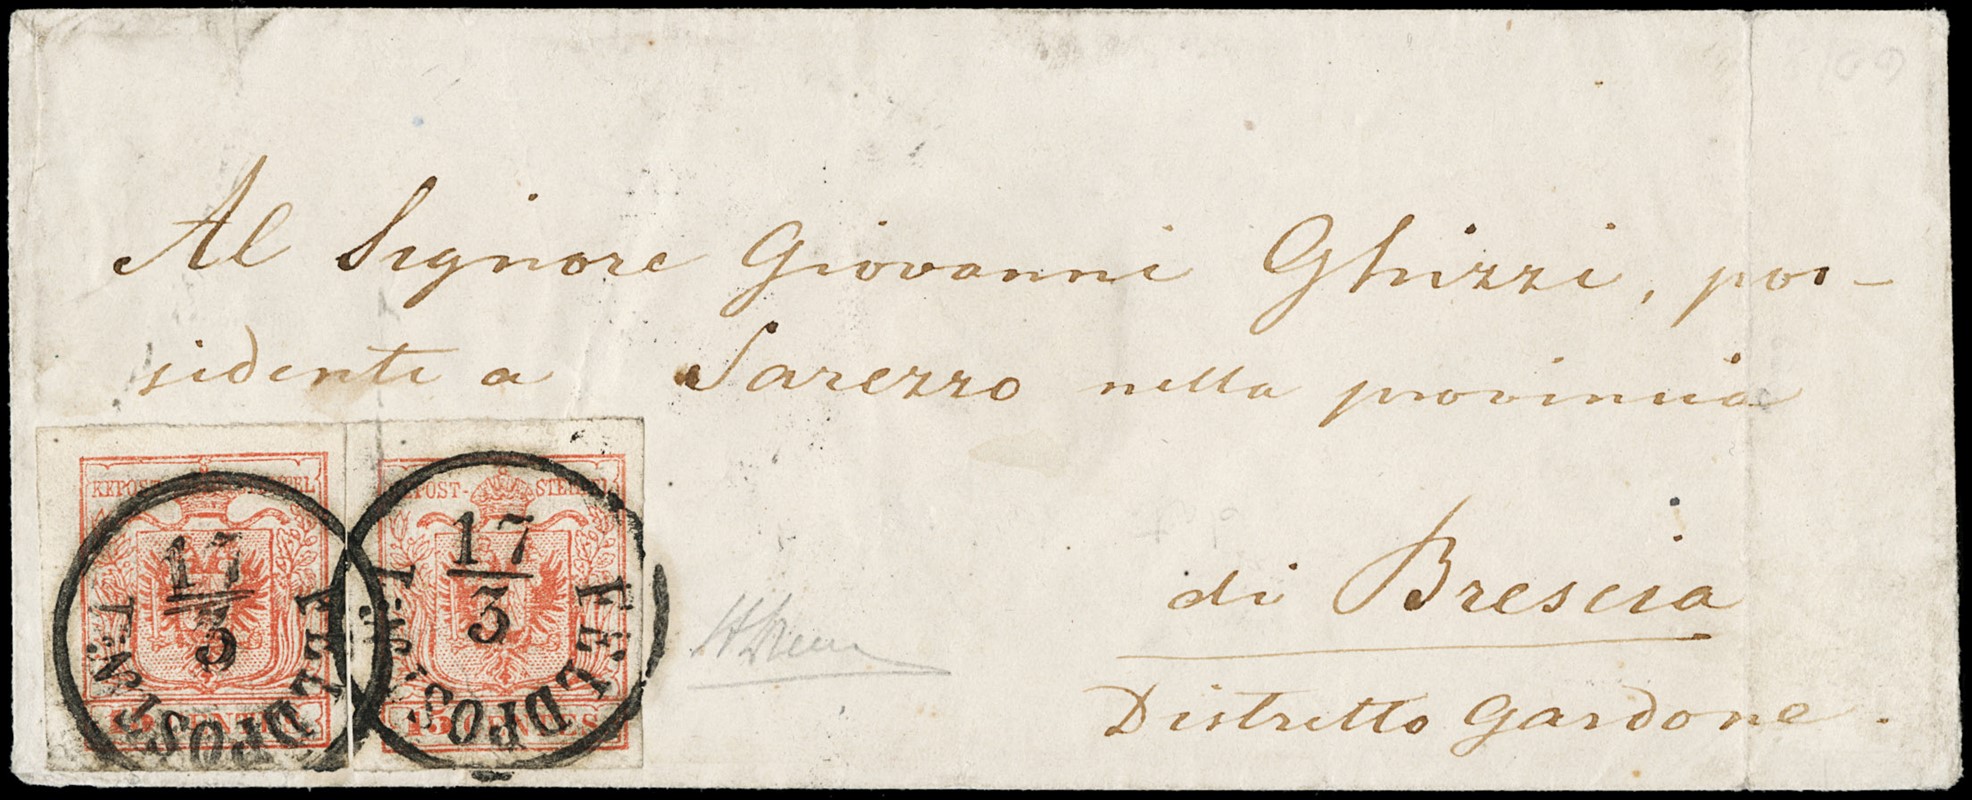 Al Signore Giovanni Ghizzi, pos-
sidente a Sarezzo nella provincia
di Brescia
Distretto Gardone.
KKPOST-STEMPEL
KKPOST-STEMPEL
17
3
FELDPOST
17
3
FELDPOST
15 CENTES
15 CENTES